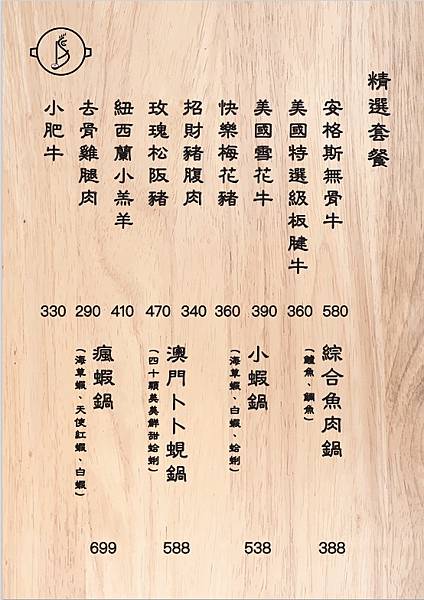 精選套餐
安格斯無骨牛
580
美國特選級板腱牛
360
美國雪花牛
390
快樂梅花豬
360
招財豬腹肉
340
玫瑰松阪豬
470
紐西蘭小羔羊
410
去骨雞腿肉
290
小肥牛
330
綜合魚肉鍋
(鱸魚、鯛魚)
388
小蝦鍋
(海草蝦、白蝦、蛤蜊)
538
澳門卜卜蜆鍋
(四十顆美美鮮甜蛤蜊)
588
瘋蝦鍋
(海草蝦、天使紅蝦、白蝦)
699